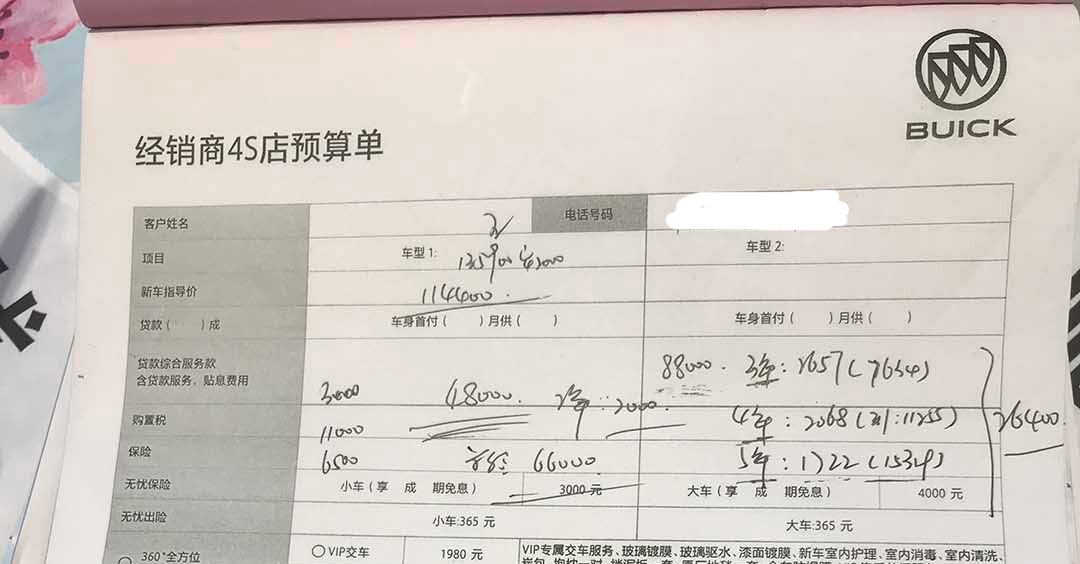 BUICK
经销商4S店预算单
客户姓名 电话号码
项目 车型1: 车型2:
新车指导价 114400.
贷款( )成 车身首付( )月供( ) 车身首付( )月供( )
贷款综合服务款
含贷款服务、贴息费用 3000 48000 2年:2000. 88000. 3年:2657(7634)
购置税 11000 4年:2068(利:11255) 26400.
保险 6500 66000 5年:1722(15329)
无忧保险 小车(享 成 期免息) 3000元 大车(享 成 期免息) 4000元
无忧出险 小车:365元 大车:365元
360°全方位 VIP交车 1980元 VIP专属交车服务、玻璃镀膜、玻璃驱水、漆面镀膜、新车室内护理、室内消毒、室内清洗、